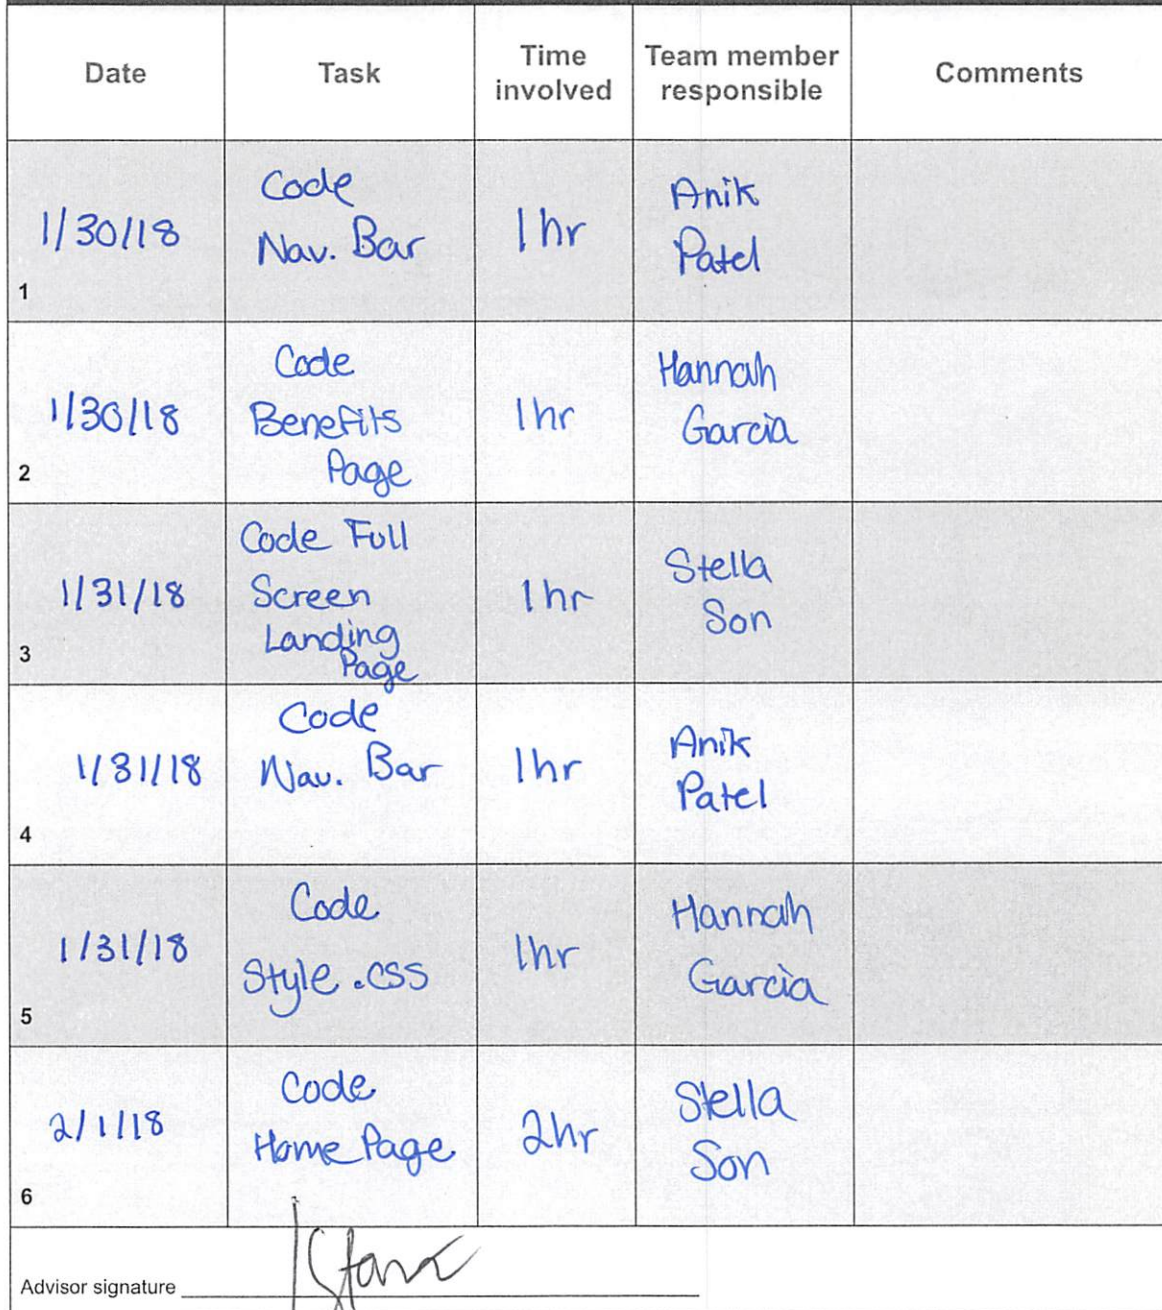 Date Task Time involved Team member responsible Comments
1 1/30/18 Code Nav. Bar 1hr Anik Patel
2 1/30/18 Code Benefits Page 1hr Hannah Garcia
3 1/31/18 Code Full Screen Landing Page 1hr Stella Son
4 1/31/18 Code Nav. Bar 1hr Anik Patel
5 1/31/18 Code Style.css 1hr Hannah Garcia
6 2/1/18 Code Home Page 2hr Stella Son
Advisor signature